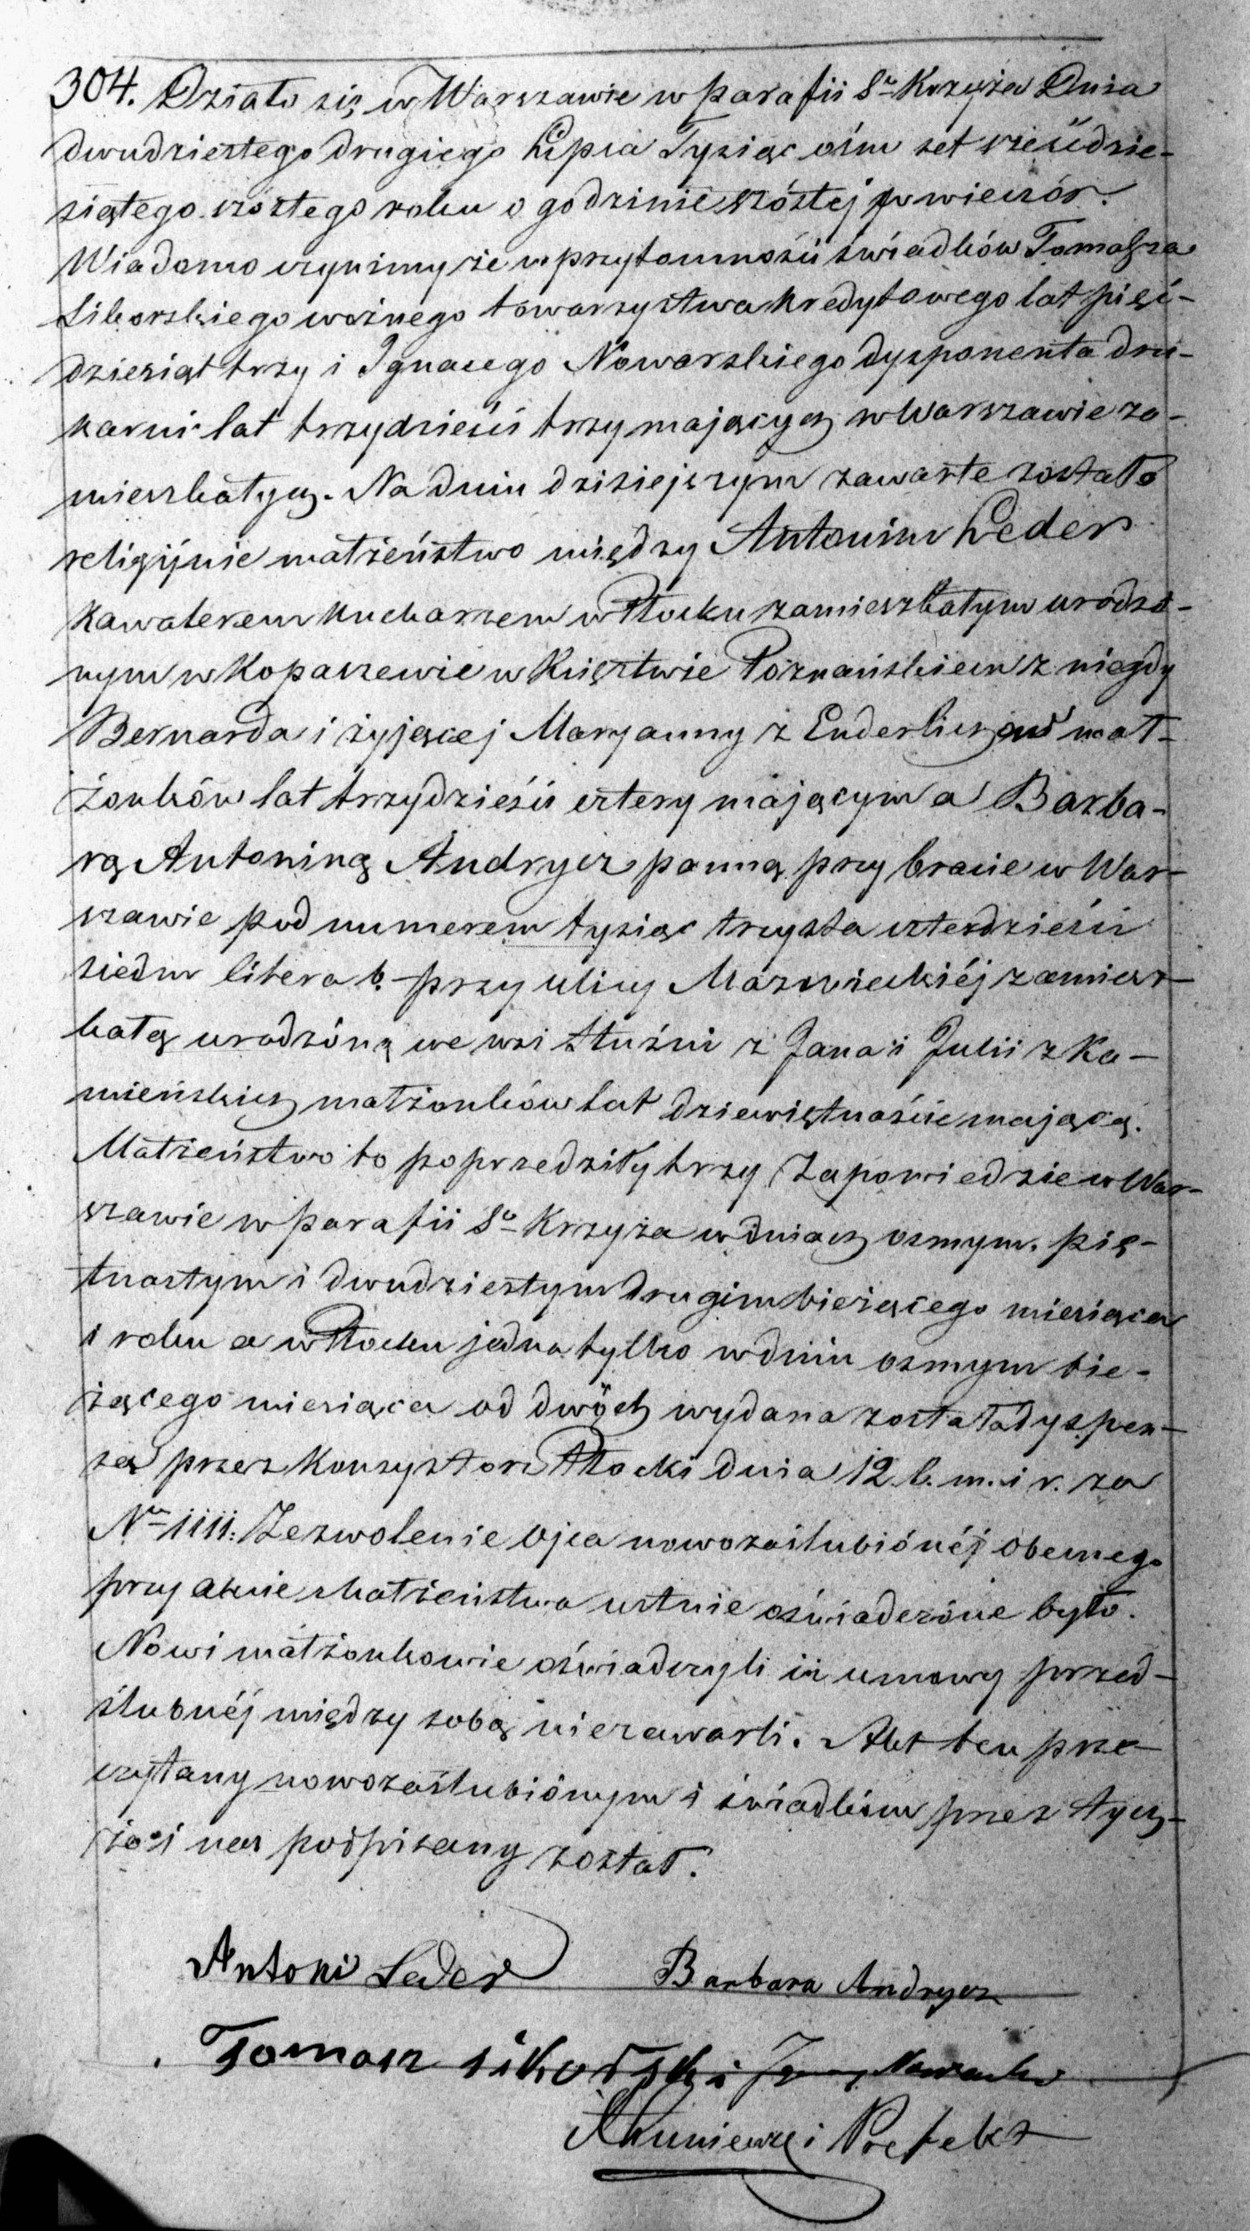 304. Działo się w Warszawie w parafii Sgo Krzyża Dnia
dwudziestego drugiego Lipca Tysiąc ośm set sześćdzie-
siątego szóstego roku o godzinie szóstej po wieczór.
Wiadomo czynimy że w przytomności świadków Tomasza
Sikorskiego woźnego towarzystwa kredytowego lat pięć-
dziesiąt trzy i Ignacego Nowarskiego dysponenta dru-
karni lat trzydzieści trzy mających w Warszawie za-
mieszkałych. Na dniu dzisiejszym zawarte zostało
religijnie małżeństwo między Antonim Leder
kawalerem kucharzem w Płocku zamieszkałym urodzo-
nym w Kopaszewie w Księstwie Poznańskiem z niegdy
Bernarda i żyjącej Maryanny z Enderlichów mał-
żonków lat trzydzieści cztery mającym a Barba-
rą Antoniną Andrycz panną przy bracie w War-
szawie pod numerem tysiąc trzysta czterdzieści
siedm litera b. przy ulicy Mazowieckiéj zamiesz-
kałą urodzóną we wsi Służni z Jana i Julii z Ka-
mieńskich małżonków lat dziewiętnaście mającą.
Małżeństwo to poprzedziły trzy Zapowiedzie w War-
szawie w parafii Sgo Krzyża w dniach osmym, pię-
tnastym i dwudziestym drugim bieżącego miesiąca
i roku a w Płocku jedna tylko w dniu osmym bie-
żącego miesiąca od dwóch wydana została dyspen-
sa przez Konsystorz Płocki dnia 12 b. m. i r. za
No 1111. Zezwolenie ojca nowozaślubiónéj obecnego
przy akcie Małżeństwa ustnie oświadczóne było.
Nowi małżonkowie oświadczyli iż umowy przed-
ślubnéj między sobą niezawarli. Akt ten prze-
czytany nowozaślubiónym i świadkom przez tych-
że i nas podpisany został.
Antoni Leder Barbara Andrycz
Tomasz Sikorski
Prefekt